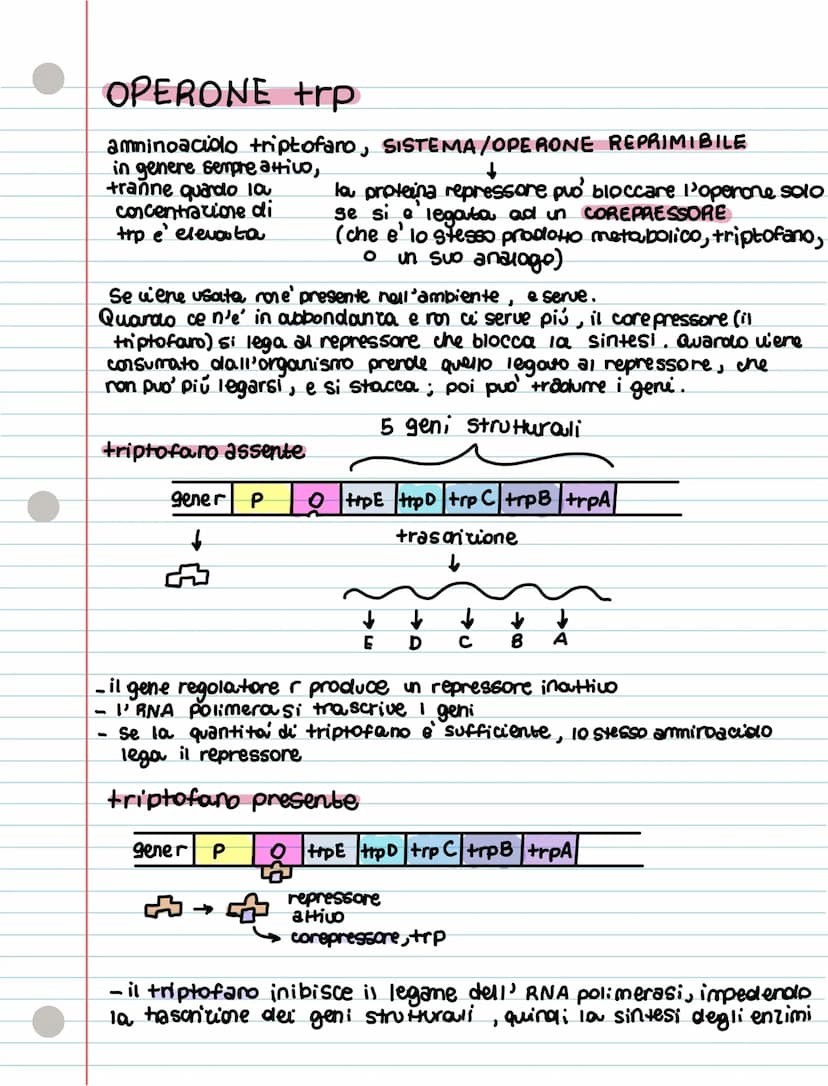 OPERONE trp
amminoacido triptofano, SISTEMA/OPERONE REPRIMIBILE
in genere sempre attivo,
tranne quando la
concentrazione di
trp e' elevata
la proteina repressore può bloccare l'operone solo
se si e' legata ad un COREPRESSORE
(che e' lo stesso prodotto metabolico, triptofano,
o un suo analogo)
Se viene usata non e' presente nell'ambiente, e serve.
Quando ce n'e' in abbondanza e non ci serve più, il corepressore (il
triptofano) si lega al repressore che blocca la sintesi. Quando viene
consumato dall'organismo prende quello legato al repressore, che
non puo' più legarsi, e si stacca; poi può tradurre i geni.
5 geni strutturali
triptofano assente
gene r P O trpE trpD trpC trpB trpA
trascrizione
E D C B A
- il gene regolatore r produce un repressore inattivo
- l'RNA polimerasi trascrive i geni
- se la quantità di triptofano e' sufficiente, lo stesso amminoacido
lega il repressore
triptofano presente
gene r P O trpE trpD trpC trpB trpA
repressore
attivo
corepressore, trp
- il triptofano inibisce il legame dell'RNA polimerasi, impedendo
la trascrizione dei geni strutturali, quindi la sintesi degli enzimi